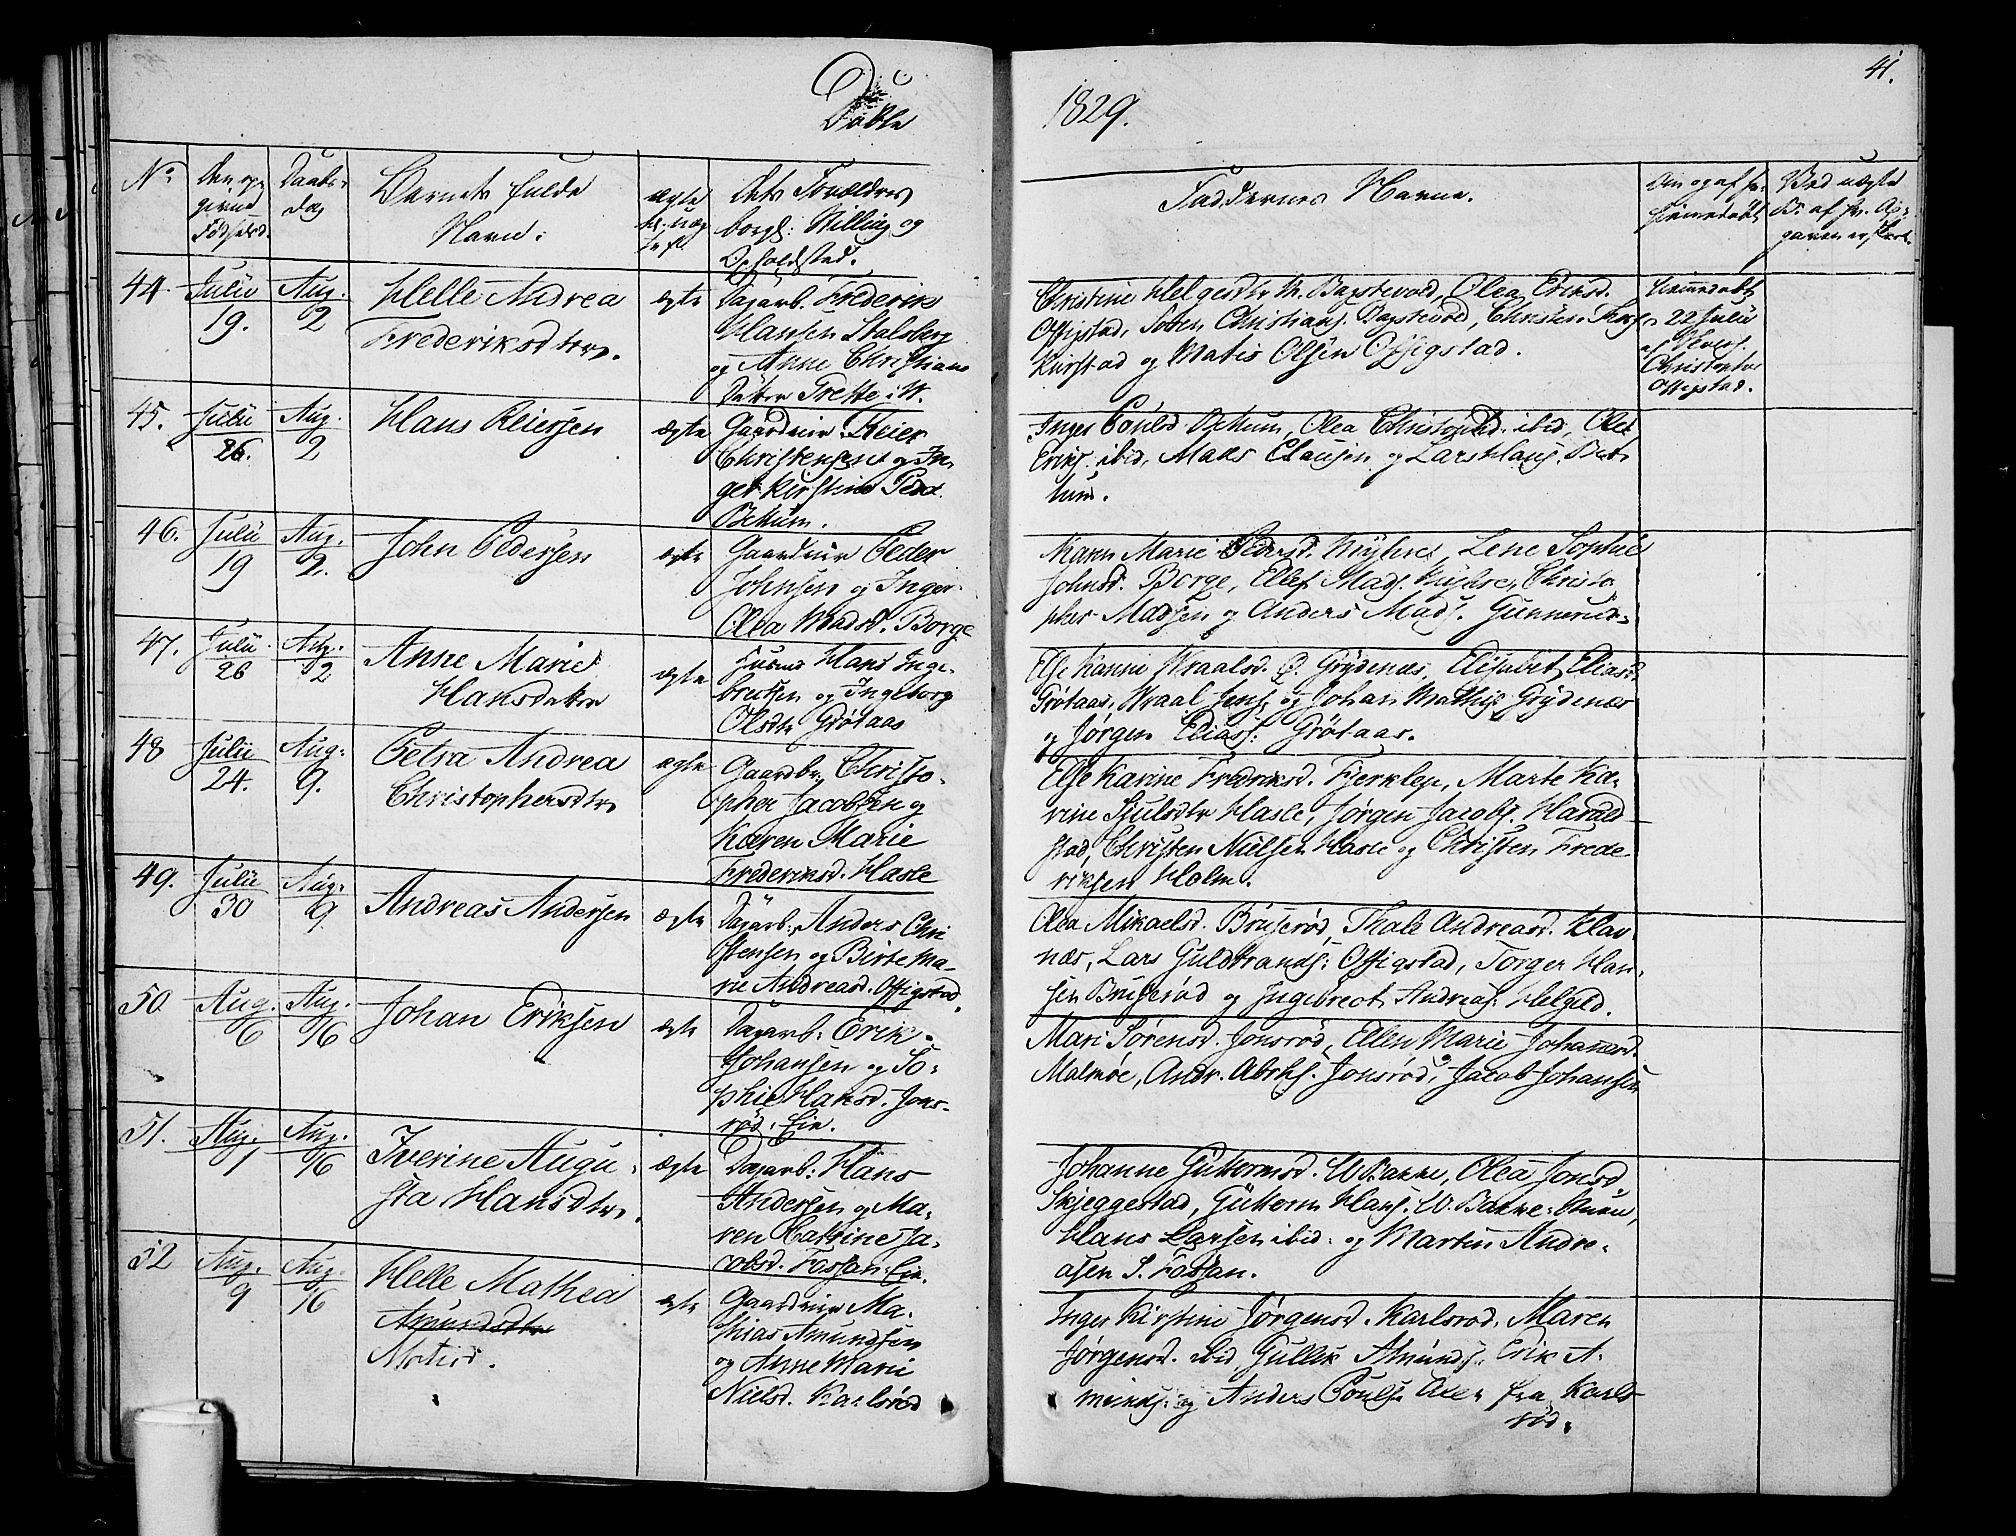 Døbte
1829.
41.
No
Den op-
givne
Fødselsd.
Daabs-
dag
Barnets fulde
Navn.
ægte
el. uæg-
te fl.
Dets Forældres
borgl: Stilling og
Opholdstad.
Faddernes Navne.
Ved uægte
44
Julii
19.
Aug.
2
Helle Andrea
Frederiksdtr.
ægte
Dagarb. Frederik
Hansen Stalsberg
og Anne Christians
Datter Trette i W.
Christine Helgesdtr M. Bagstevold, Olea Eriksd.
Offigstad, Søren Christians. Bagstevold, Christen
Kirstad og Matis Olsen Offigstad.
22 Julii
af
Christopher
Offigstad.
45.
Julii
26.
Aug.
2
Hans Reiersen
ægte
Gaardmr Reier
Christensen og In-
ger Kirstine Ped.
Bettum.
Inger Pouls Bettum, Olea Christophd. ibid, Ole
Eriks. ibid, Mads Clausen og Lars Hans. Bet-
tum.
46.
Julii
19
Aug.
2.
John Pedersen
ægte
Gaardmr Peder
Johnsen og Inger
Olea Madsd. Borge
Karen Marie Pedersd. Lene Sophie
Johnsd. Borge, Ellef Mads. Christo-
pher Madsen og Anders Mads. Gunnerud.
47.
Julii
26
Aug.
2
Anne Marie
Hansdatter
ægte
Husmd Hans Inge-
bretsen og Ingeborg
Olsdtr Grøtaas
Else Karine Wraalsd. Ø. Grydenæs, Elisabet Eliasd
Grøtaas, Wraal Jens. og Johan Mathis. Grydenæs
og Jørgen Elias. Grøtaas.
48
Julii
24.
Aug.
9.
Petra Andrea
Christophersdtr
ægte
Gaardbr. Christo-
pher Jacobsen og
Karen Marie
Frederiksd. Hasle
Else Karine Fredriksd. Fjerklep, Marte Ka-
rine Sjulsdtr Hasle, Jørgen Jacobs. Harald
stad, Christen Nielsen Hasle og Christen Frede
riksen Holm.
49.
Julii
30
Aug.
9
Andreas Andersen
ægte
Dagarb. Anders Chri
stensen og Birte Ma-
rie Andreasd. Offigstad.
Olea Mikaelsd. Bruserød, Thale Andreasd. Klav-
næs, Lars Guldbrands. Offigstad, Torger Han-
sen Bruserød og Ingebret Andreas. Helgad.
50
Aug.
6
Aug.
16
Johan Eriksen
ægte
Dagarb: Erik
Johansen og So-
phie Hansd. Jons-
rød. Eie.
Mari Sørensd. Jonsrød, Ellen Marie Johannesd.
Malmøe, Andr. Abrhs. Jonsrød, Jacob Johansen
51.
Aug.
1
Aug.
16
Iverine Augu-
sta Hansdtr.
ægte
Dagarb: Hans
Andersen og Ma-
ren Katrine Ja-
cobsd. Fossan. Eie.
Johanne Guttormsd. W. Bakke, Olea Jonsd
Skjeggestad, Guttorm Hans. W. Bakke
Hans Larsen ibid. og Martin Andre-
asen S. Fossan.
52
Aug.
9
Aug.
16
Helle Mathea
Amundsdtr
Matisd.
ægte
Gaardmr Ma-
thias Amundsen
og Anne Mari
Nielsd. Karlsrød
Inger Kirstine Jørgensd. Karlsrød, Maren
Jørgensd. ibid, Gullik Amunds. Erik A-
munds. og Anders Pouls. Alle fra Karls
rød.